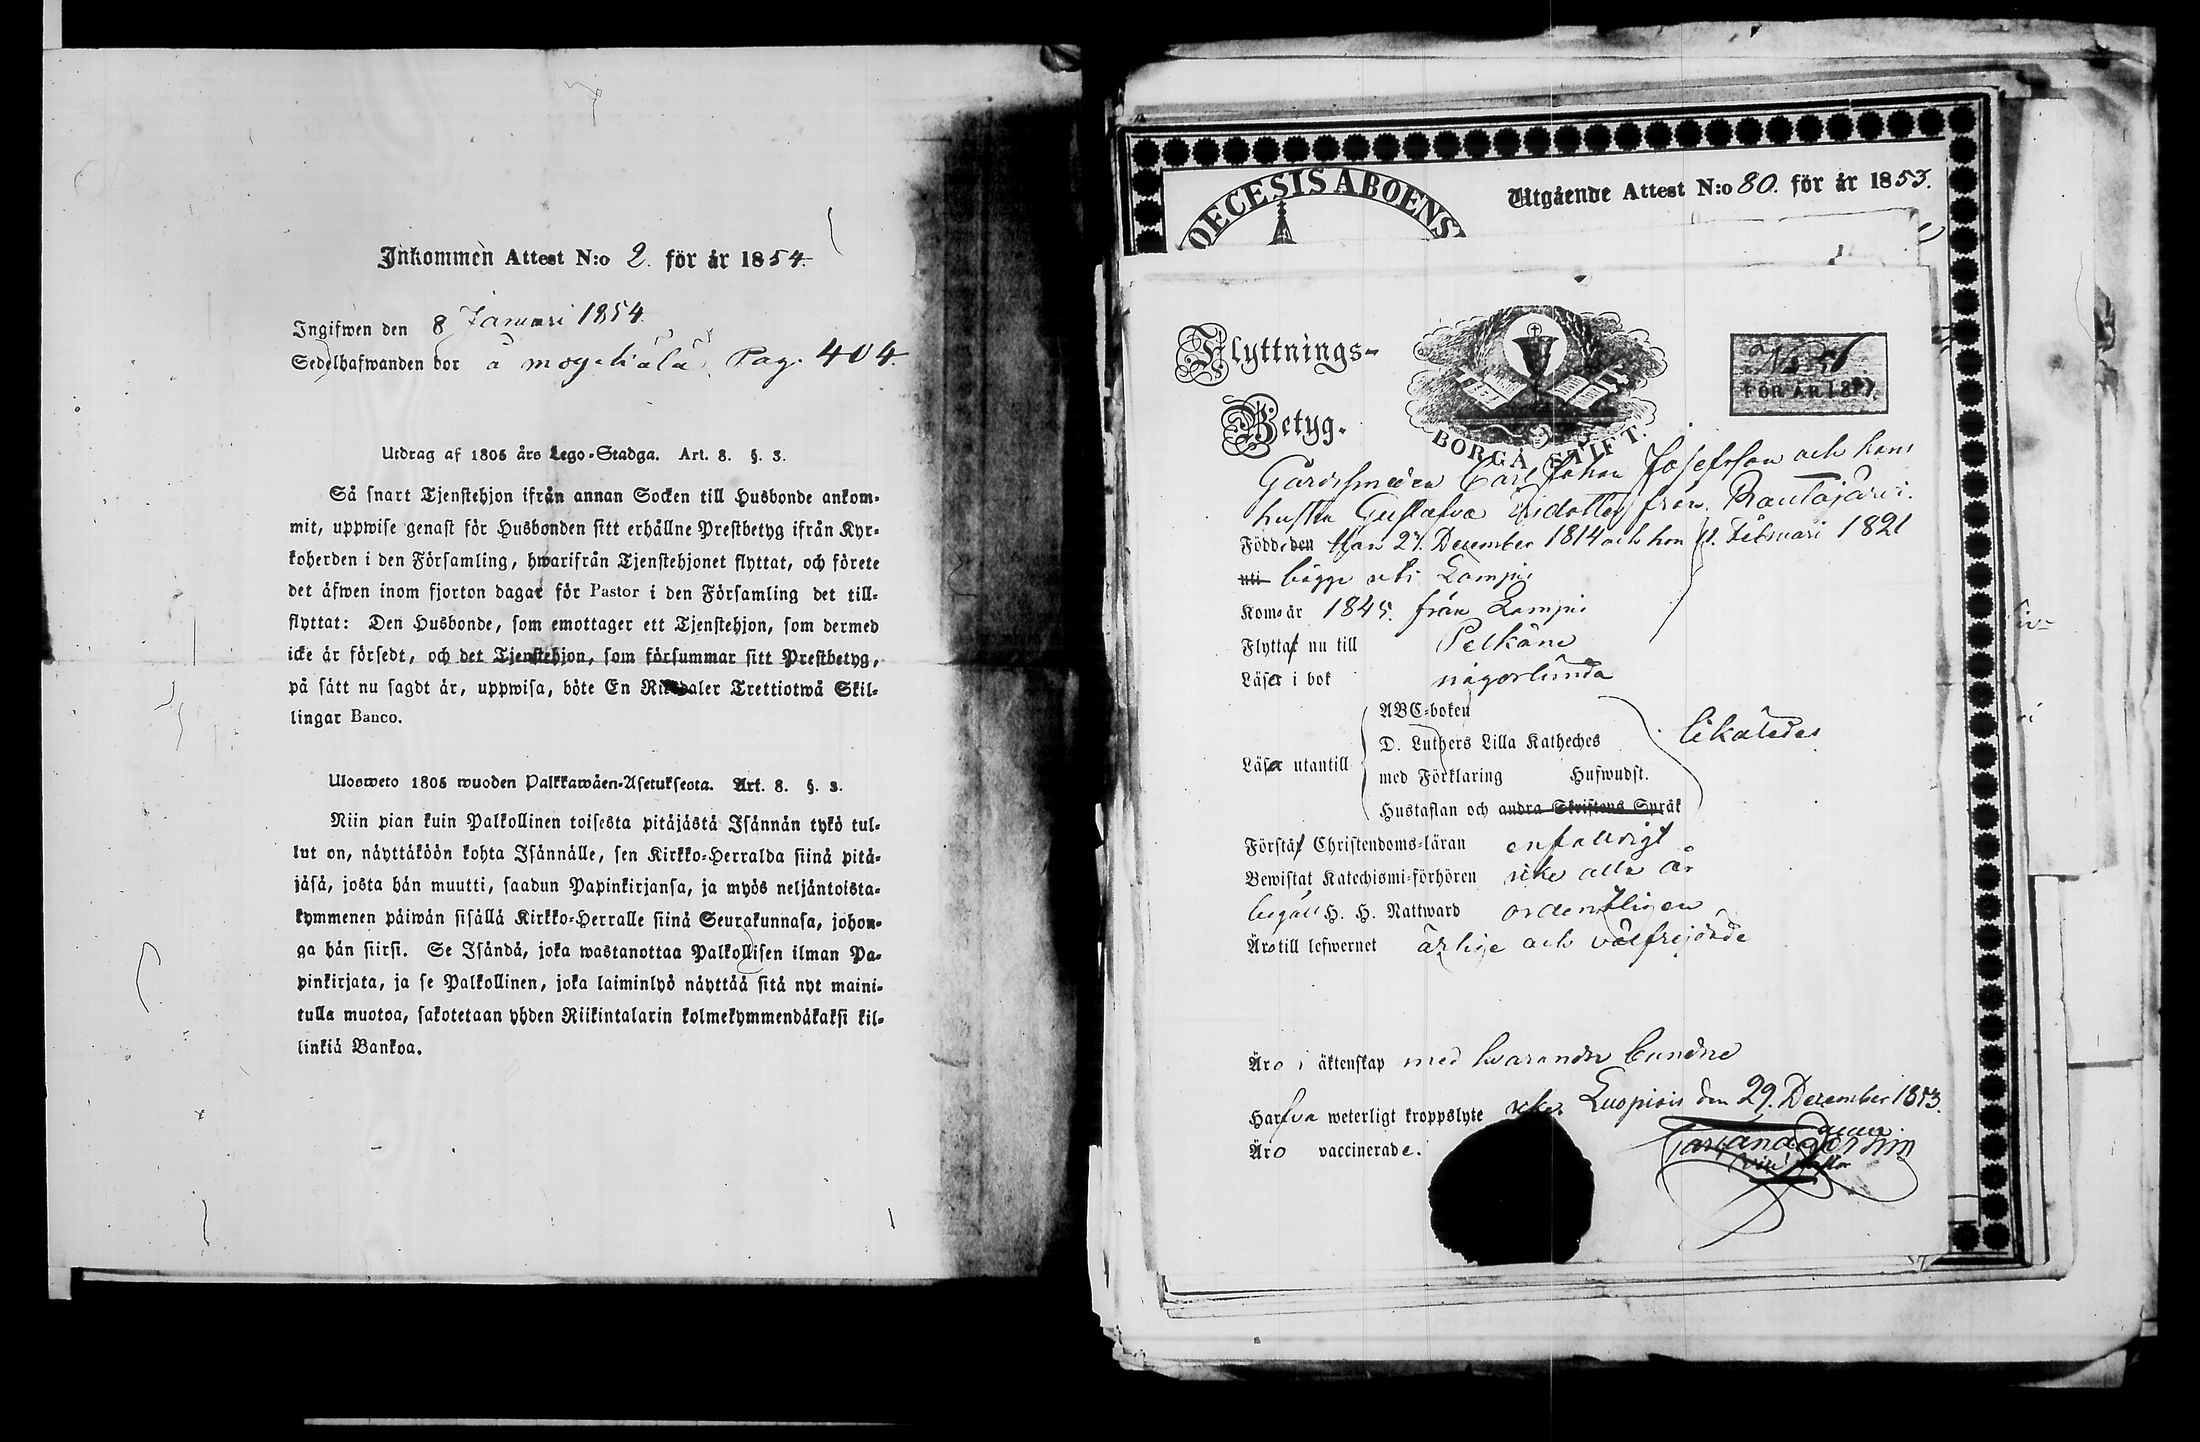 Inkommen Attest N:o 2. för år 1854.
Ingifwen den 8 Januari 1854.
Sedelhafwanden bor å Pag. 404.
Utdrag af 1805 års Lego-Stadga. Art. 8. §. 3.
Så snart Tjenstehjon ifrån annan Socken till Husbonde ankom-
mit, uppwise genast för Husbonden sitt erhållne Prestbetyg ifrån Kyr-
koherden i den Församling, hwarifrån Tjenstehjonet flyttat, och förete
det äfwen inom fjorton dagar för Pastor i den Församling det till-
flyttat: Den Husbonde, som emottager ett Tjenstehjon, som dermed
icke är försedt, och det Tjenstehjon, som försummar sitt Prestbetyg,
på sätt nu sagdt är, uppwisa, böte En Riksdaler Trettiotwå Skil-
lingar Banco.
Ulosweto 1805 wuoden Palkkawäen-Asetuksesta. Art. 8. §. 3.
Niin pian kuin Palkollinen toisesta pitäjästä Isännän tykö tul-
lut on, näyttäköön kohta Isännälle, sen Kirkko-Herralda siinä pitä-
jäsä, josta hän muutti, saadun Papinkirjansa, ja myös neljäntoista-
kymmenen päiwän sisällä Kirkko-Herralle siinä Seurakunnasa, johon-
ga hän siirsi. Se Isändä, joka wastanottaa Palkollisen ilman Pa-
pinkirjata, ja se Palkollinen, joka laiminlyö näyttää sitä nyt maini-
tulla muotoa, sakotetaan yhden Riikintalarin kolmekymmendäkaksi kil-
linkiä Bankoa.
OECESIS ABOENS
Utgående Attest N:o 80. för år 1853.
Flyttnings-
Betyg.
BORGÅ STIFT.
FÖR ÅR 18
Gårdssmeden Carl Johan Josefsson och hans
hustru Gustafva från Rautajärvi.
Födde den Han 27. December 1814 och hon 11. Februari 1821
uti bägge uti Lampis
Kom år 1845. från Lampis
Flytta nu till Pelkäne
Läsa i bok någorlunda
ABC-boken
D. Luthers Lilla Katheches
Läsa utantill med Förklaring Hufwudst. likaledes
Hustaflan och andra Skriftens Språk
Förstå Christendoms-läran enfalldigt
Bewistat Katechismi-förhören icke alla år
begått H. H. Nattward ordentligen
Äro till lefwernet ärlige och välfrejdade
Äro i äktenskap med hvarandra bundne
Hafva weterligt kroppslyte icke. Luopiois den 29. December 1853.
Äro vaccinerade.